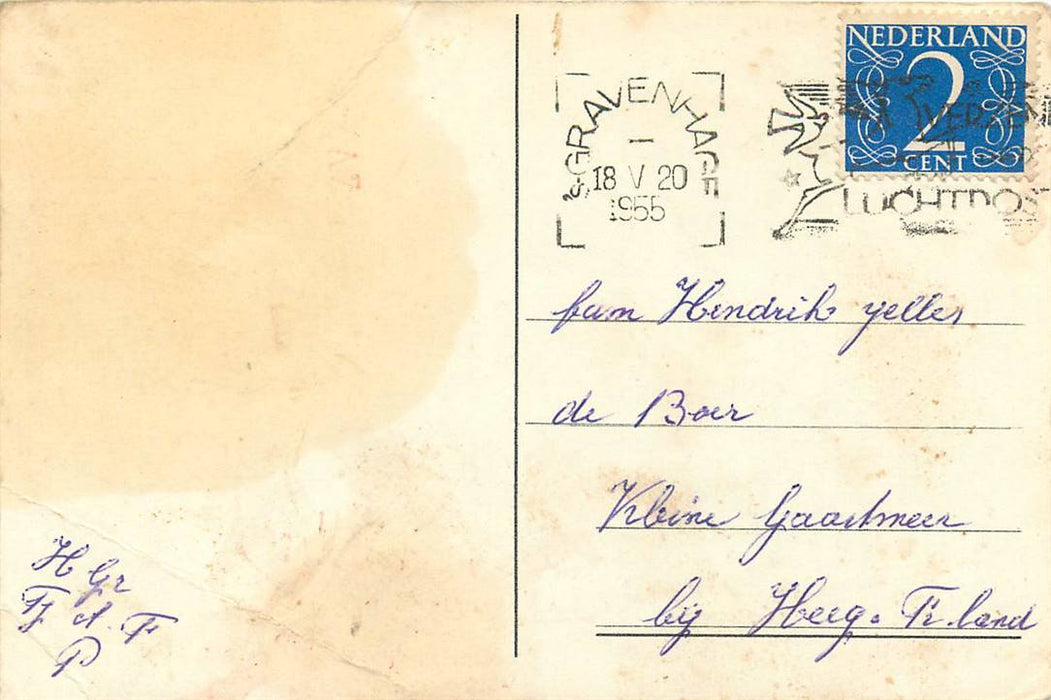 NEDERLAND
2
CENT
's-GRAVENHAGE
18 V 20
1955
LUCHTPOST
fam Hendrik Yelles
de Boer
Kleine Gaastmeer
bij Heeg. Fr. land
H Gr
Tj A. F
P